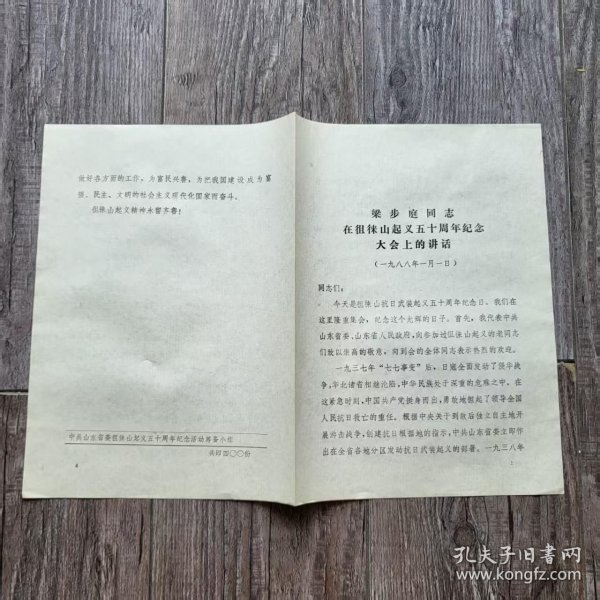 做好各方面的工作，为富民兴鲁，为把我国建设成为富
强、民主、文明的社会主义现代化国家而奋斗。
徂徕山起义精神永留齐鲁！
中共山东省委徂徕山起义五十周年纪念活动筹备小组
共印四〇〇份
4
梁步庭同志
在徂徕山起义五十周年纪念
大会上的讲话
（一九八八年一月一日）
同志们：
今天是徂徕山抗日武装起义五十周年纪念日。我们在
这里隆重集会，纪念这个光辉的日子。首先，我代表中共
山东省委、山东省人民政府，向参加过徂徕山起义的老同志
们致以崇高的敬意，向到会的全体同志表示热烈的欢迎。
一九三七年“七七事变”后，日寇全面发动了侵华战
争，华北诸省相继沦陷，中华民族处于深重的危难之中。在
这紧急时刻，中国共产党挺身而出，勇敢地掮起了领导全国
人民抗日救亡的重任。根据中央关于到敌后独立自主地开
展游击战争，创建抗日根据地的指示，中共山东省委立即作
出在全省各地分区发动抗日武装起义的部署。一九三八年
1
孔夫子旧书网
www.kongfz.com